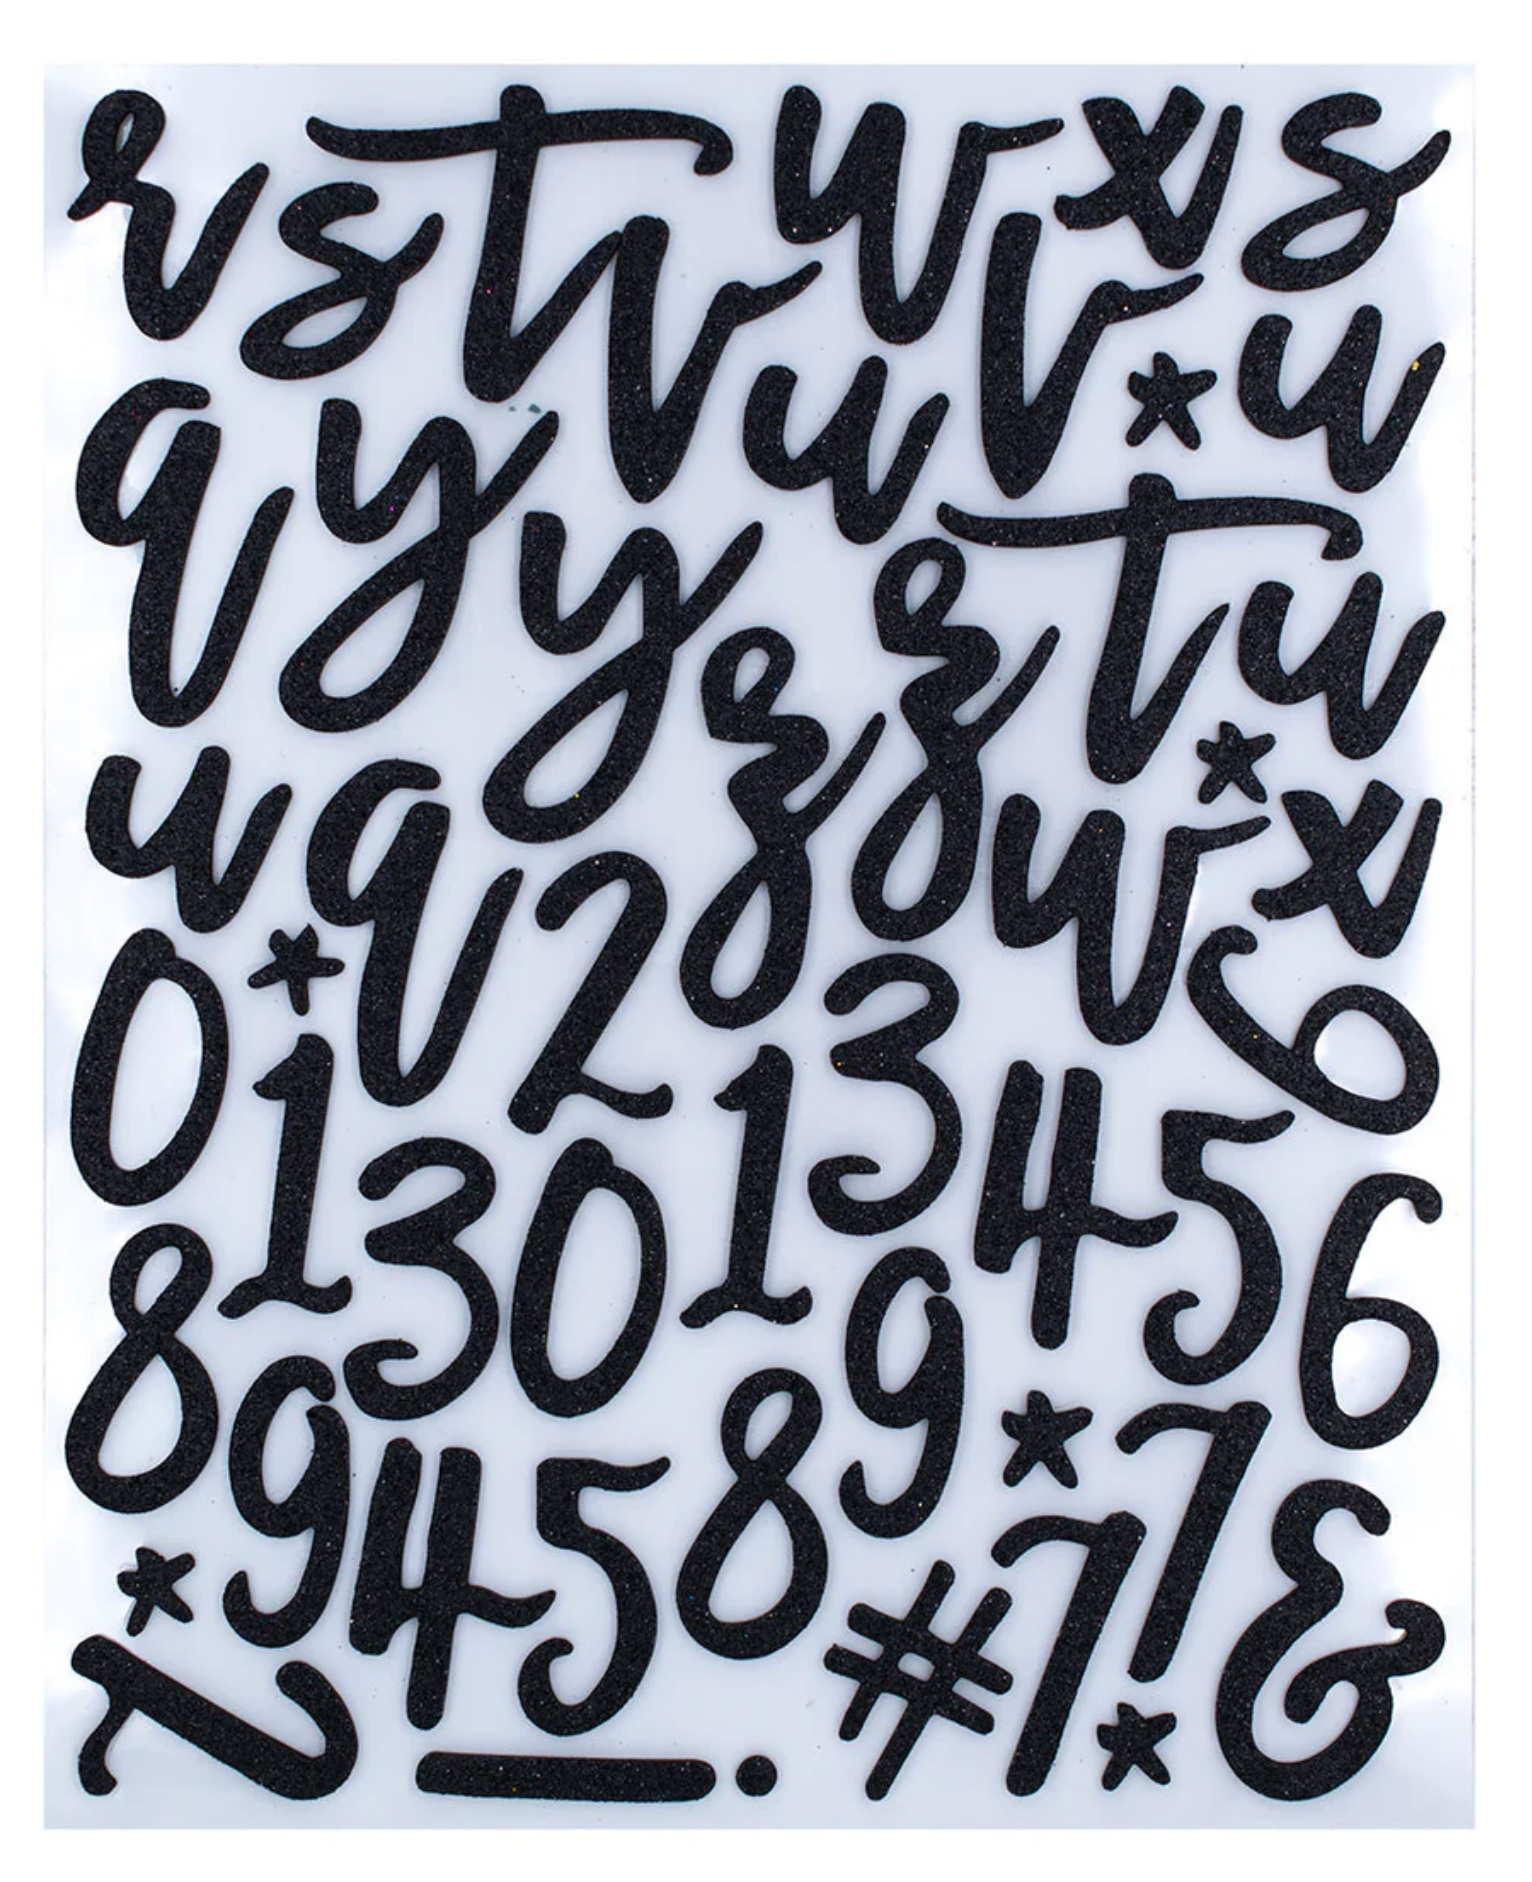 r s t v w v x s
q y y u t u
u q z z w x
0 * 2 3 6
1 3 0 1 4 5 6
8 9 4 5 8 9 * 7
* # 7 * &
1 - .